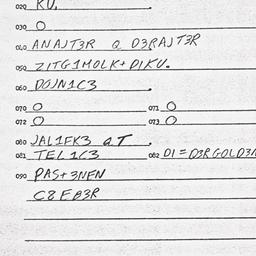 020 KU.
030 O
040 ANAJT3R Q D3RAJT3R
050 ZITG1MOLK+DIKU.
060 DOJN1C3
070 O 071 O
072 O 073 O
080 JAL1FK3 QT
081 TEL1C3 082 DI=D3RGOLD3N
090 PAS+3NFN
C8EB3R